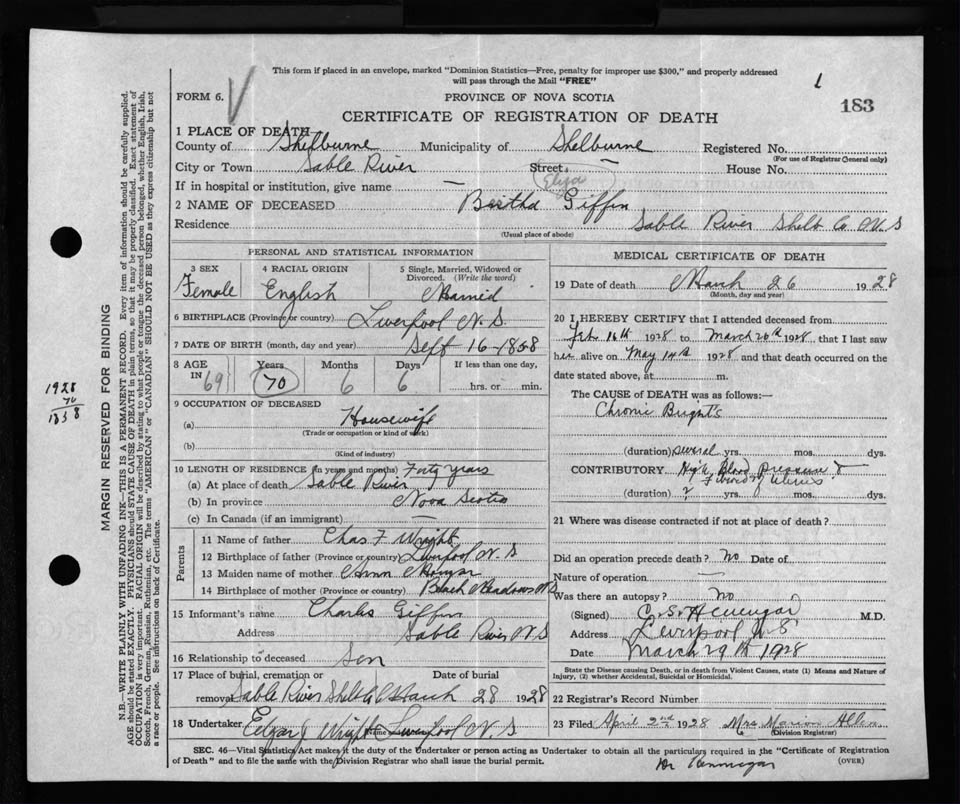 This form if placed in an envelope, marked "Dominion Statistics—Free, penalty for improper use $300," and properly addressed
will pass through the Mail "FREE"
1
183
FORM 6. V
PROVINCE OF NOVA SCOTIA
CERTIFICATE OF REGISTRATION OF DEATH
1 PLACE OF DEATH
County of Shelburne Municipality of Shelburne Registered No.
(For use of Registrar General only)
City or Town Sable River Street — House No.
If in hospital or institution, give name —
Eliza
2 NAME OF DECEASED Bertha Giffin
Residence Sable River Shelb Co N.S
(Usual place of abode)
PERSONAL AND STATISTICAL INFORMATION
3 SEX 4 RACIAL ORIGIN 5 Single, Married, Widowed or Divorced. (Write the word)
Female English Married
6 BIRTHPLACE (Province or country) Liverpool N.S.
7 DATE OF BIRTH (month, day and year) Sept 16-1858
8 AGE Years Months Days If less than one day,
IN 69 70 6 6 hrs. or min.
9 OCCUPATION OF DECEASED
(a) Housewife
(Trade or occupation or kind of work)
(b)
(Kind of industry)
10 LENGTH OF RESIDENCE (in years and months) Forty years
(a) At place of death Sable River
(b) In province Nova Scotia
(c) In Canada (if an immigrant) —
Parents
11 Name of father Chas. F Wright
12 Birthplace of father (Province or country) Liverpool N.S
13 Maiden name of mother Ann
14 Birthplace of mother (Province or country) Black Meadows N.S
15 Informant's name Charles Giffin
Address Sable River N.S
16 Relationship to deceased Son
17 Place of burial, cremation or Date of burial
removal Sable River Shelb Co March 28 1928
18 Undertaker Edgar J Wright Liverpool N.S
MEDICAL CERTIFICATE OF DEATH
19 Date of death March 26 1928
(Month, day and year)
20 I HEREBY CERTIFY that I attended deceased from
Feb 16th 1928 to March 20th 1928, that I last saw
her alive on May 14th 1928 and that death occurred on the
date stated above, at m.
The CAUSE OF DEATH was as follows:—
Chronic Bright's
(duration) several yrs. mos. dys.
CONTRIBUTORY High Blood Pressure &
Fibroid of Uterus
(duration) ? yrs. ? mos. dys.
21 Where was disease contracted if not at place of death?
Did an operation precede death? No Date of
Nature of operation —
Was there an autopsy? No
(Signed) C. S. M.D.
Address Liverpool N.S
Date March 29th 1928
State the Disease causing Death, or in death from Violent Causes, state (1) Means and Nature of
Injury, (2) whether Accidental, Suicidal or Homicidal.
22 Registrar's Record Number
23 Filed April 2nd 1928 Mrs. Marion Allen
(Division Registrar)
SEC. 46—Vital Statistics Act makes it the duty of the Undertaker or person acting as Undertaker to obtain all the particulars required in the "Certificate of Registration
of Death" and to file the same with the Division Registrar who shall issue the burial permit.
(OVER)
Dr
1928
70
1858
MARGIN RESERVED FOR BINDING
N.B.—WRITE PLAINLY WITH UNFADING INK—THIS IS A PERMANENT RECORD. Every item of information should be carefully supplied.
AGE should be stated EXACTLY. PHYSICIANS should STATE CAUSE OF DEATH in plain terms, so that it may be properly classified. Exact statement of
OCCUPATION is very important. RACIAL ORIGIN will be described by stating to what people or tongue the deceased person belonged, whether English, Irish,
Scotch, French, German, Russian, Ruthenian, etc. The terms "AMERICAN" or "CANADIAN" SHOULD NOT BE USED as they express citizenship but not
a race or people. See instructions on back of Certificate.